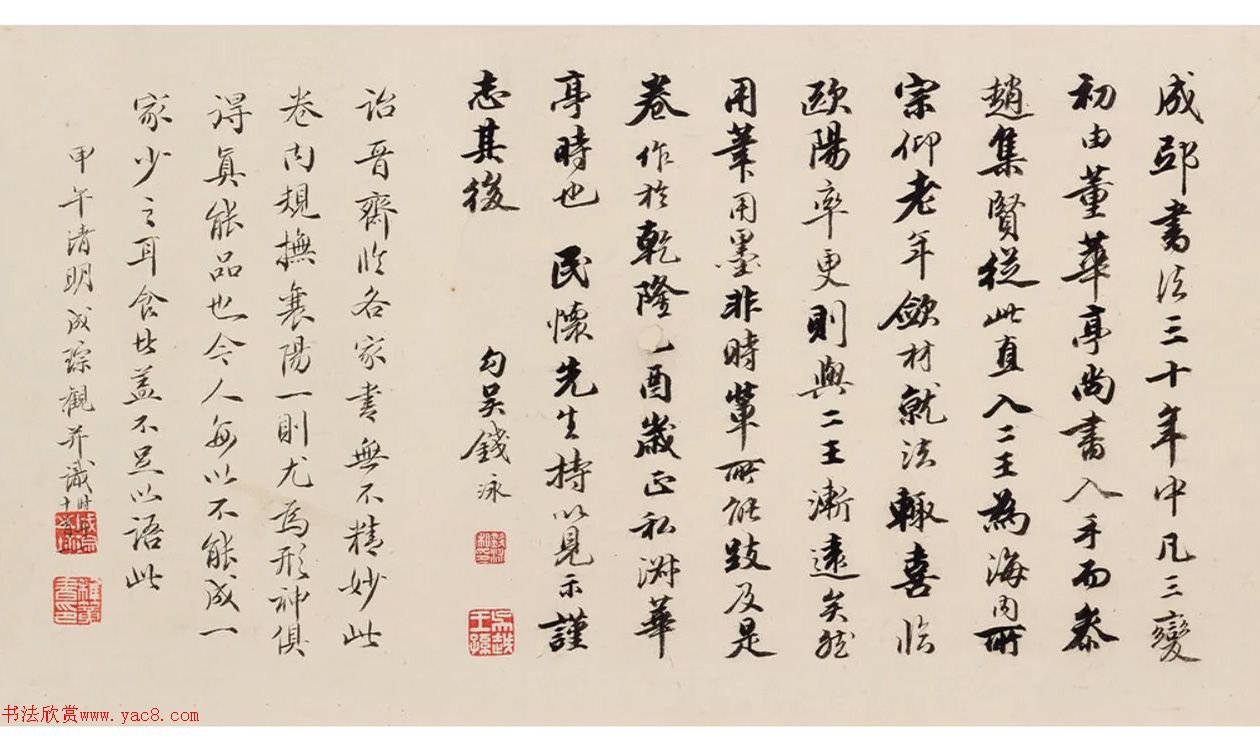 成邸書法三十年中凡三變
初由董華亭尚書入手而參
趙集賢從此直入二王為海內所
宗仰老年斂材就法輙喜臨
歐陽率更則與二王漸遠矣然
用筆用墨非時輩所能跂及是
卷作於乾隆己酉歲正私淑華
亭時也 民懷先生持以見示謹
志其後
勾吳錢泳
吳越王孫
詒晉齋臨各家書無不精妙此
卷內規撫襄陽一則尤為形神俱
得真能品也今人每以不能成一
家少之耳食者蓋不足以語此
甲午清明成琮觀并識時年
书法欣赏www.yac8.com